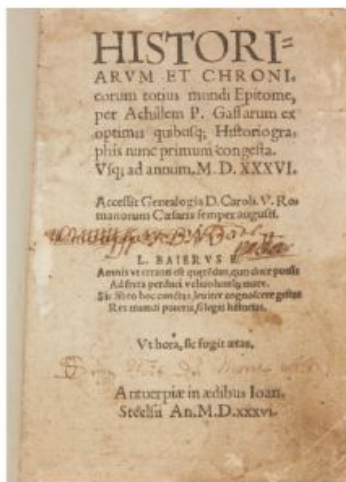 HISTORI=
ARVM ET CHRONI.
corum totius mundi Epitome,
per Achillem P. Gassarum ex
optimis quibusq; Historiogra
phis nunc primum congesta.
Vsq; ad annum. M. D. XXXVI.
Accessit Genealogia D. Caroli. V. Ro
manorum Cæsaris semper augusti.
L. BAIERVS
Amnis ut erranti est
Ad freta perduci
Sic libro hoc cunctas, leviter cognoscere gestas
Res mundi poteris, si legis historias.
Vt hora, sic fugit ætas.
Antuerpiæ in ædibus Ioan.
Steelsii An. M. D. xxxvi.